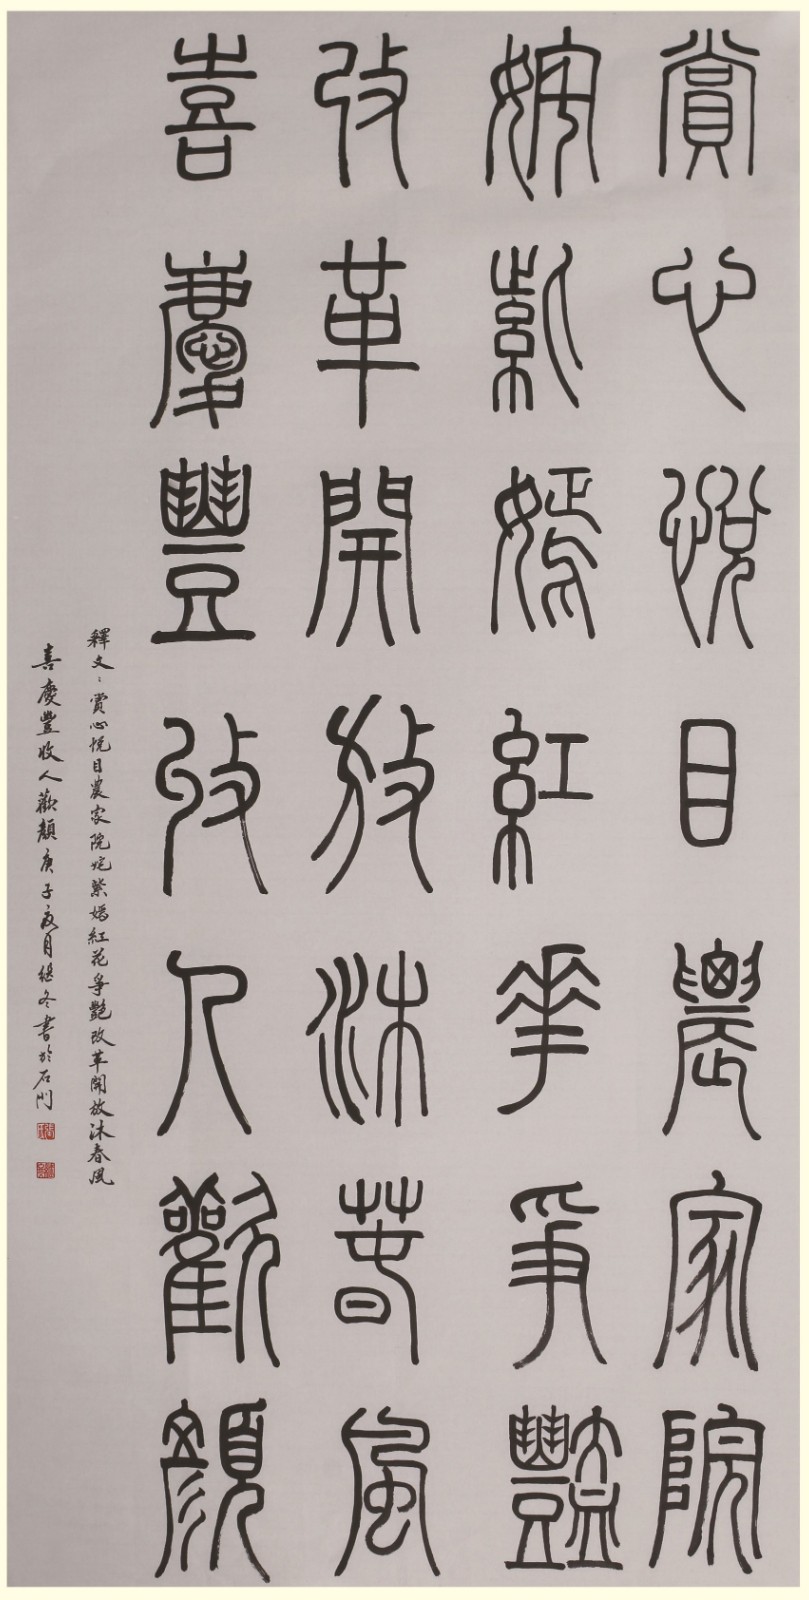 賞心悅目農家院
姹紫嫣紅華爭豔
改革開放沐春風
喜慶豐收人歡顏
釋文：賞心悅目農家院姹紫嫣紅花爭艷改革開放沐春風
喜慶豐收人歡顏庚子夏月繼冬書於石門